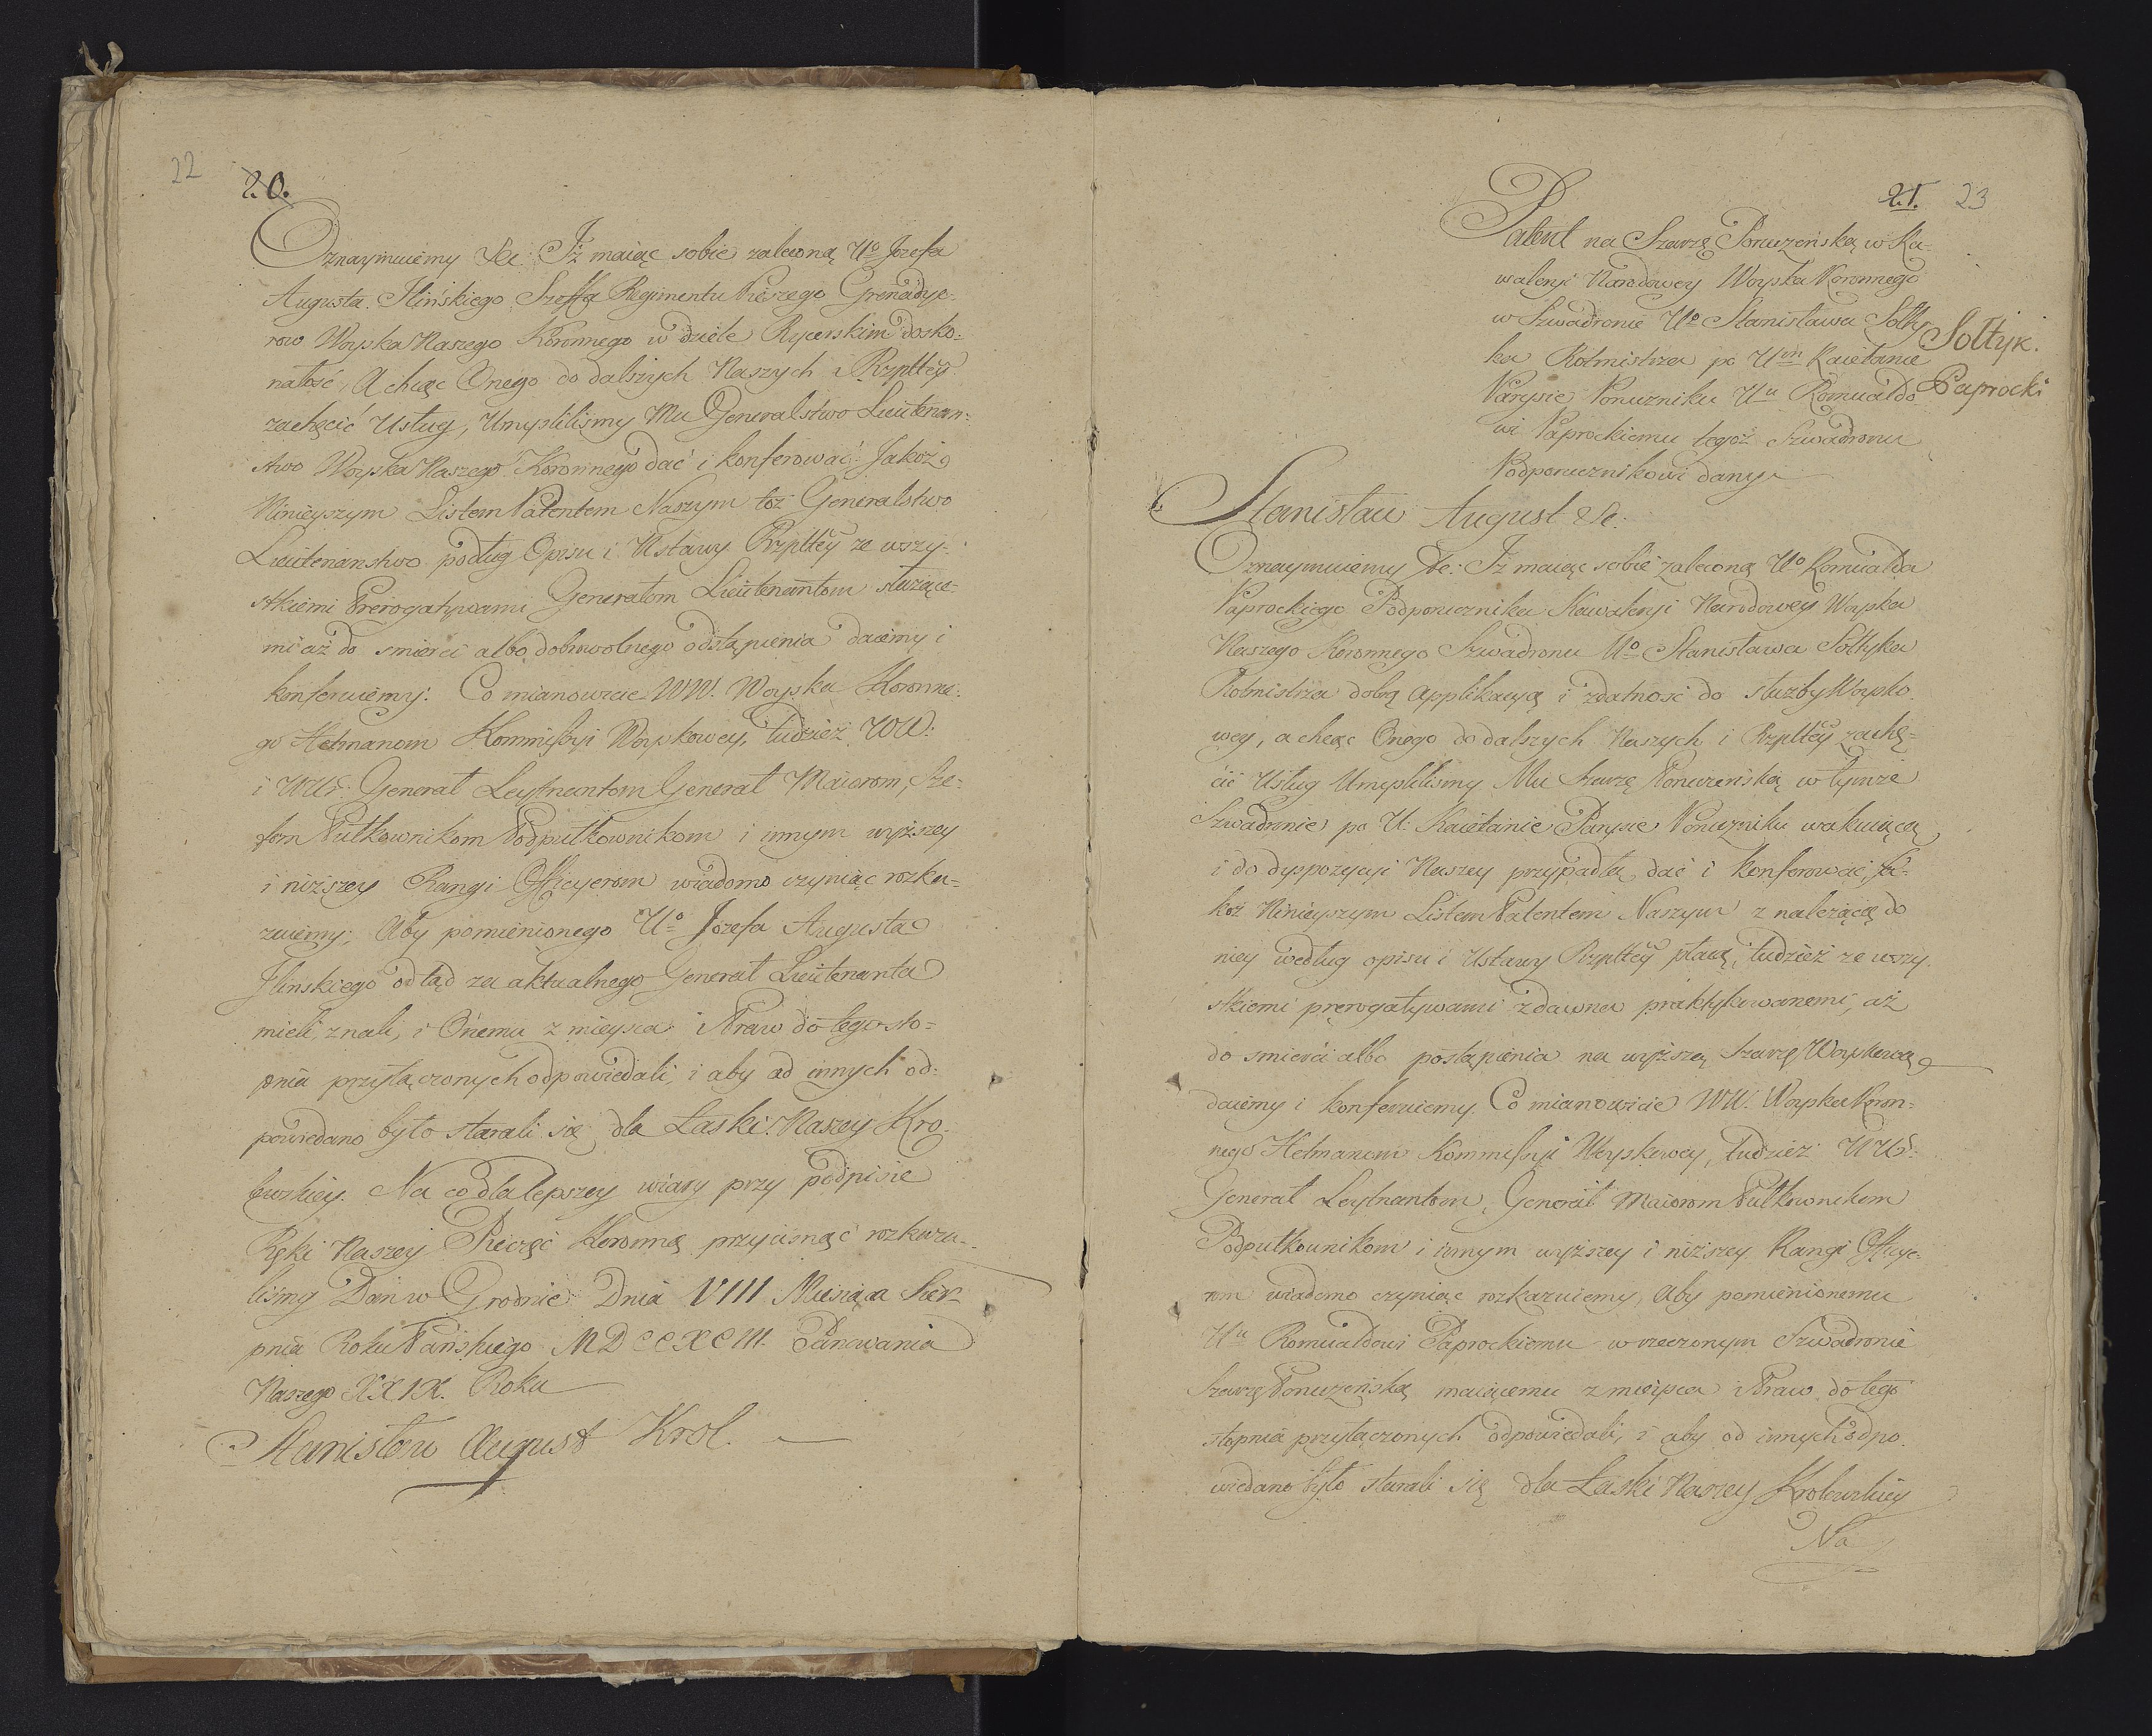 22
20.
Oznaymuiemy &c: Iż maiąc sobie zaleconą Uo Jozefa
Augusta Ilińskiego Szeffa Regimentu Pieszego Grenadye-
row Woyska Naszego Koronnego w dziele Rycerskim dosko-
nałość, A chcąc Onego do dalszych Naszych i Rzpltey
zachęcić Usług, Umyslilismy Mu Generalstwo Lieutenan-
stwo Woyska Naszego Koronnego dać i konferować: Jakoż
Ninieyszym Listem Patentem Naszym toż Generalstwo
Lieutenanstwo podług Opisu i Ustawy Rzpltey ze wszy-
stkiemi Prerogatywami Generałom Lieutenantom służące-
mi aż do smierci albo dobrowolnego odstąpienia daiemy i
konferuiemy. Co mianowicie WW. Woyska Koronne-
go Hetmanom Kommissyi Woyskowey, tudzież WW:
i UUr: Generał Leytnantom Generał Maiorom, Sze-
fom Pułkownikom Podpułkownikom i innym wyższey
i niższey Rangi Officyerom wiadomo czyniąc rozka-
zuiemy: Aby pomienionego Uo Jozefa Augusta
Ilinskiego odtąd za aktualnego Generał Lieutenanta
mieli, znali, i Onemu z mieysca i Praw do tego sto-
pnia przyłączonych odpowiedali, i aby od innych od-
powiedano było starali się, dla Łaski Naszey Kro-
lewskiey. Na co dla lepszey wiary przy podpisie
Ręki Naszey Pieczęć Koronną przycisnąć rozkaza-
lismy Dan w Grodnie Dnia VIII Miesiąca Sier-
pnia Roku Pańskiego MDCCXCIII. Panowania
Naszego XXIX. Roku
Stanisław August Krol.
21. 23
Patent na Szarżę Poruczeńską w Ka-
waleryi Narodowey Woyska Koronnego
w Szwadronie Uo Stanisława Sołty-
ka Rotmistrza po Unm Kaietanie
Parysie Poruczniku Uu Romualdo-
wi Paprockiemu tegoż Szwadronu
Podporucznikowi dany
Sołtyk.
Paprocki
Stanisław August &c:
Oznaymuiemy &c: Iż maiąc sobie zaleconą Uo Romualda
Paprockiego Podporucznika Kawaleryi Narodowey Woyska
Naszego Koronnego Szwadronu Uo Stanisława Sołtyka
Rotmistrza dobrą applikacyą i zdatność do służby Woysko-
wey, a chcąc Onego do dalszych Naszych i Rzpltey zachę-
cić Usług Umyslilismy Mu Szarżę Poruczeńską w tymże
Szwadronie po U. Kaietanie Parysie Poruczniku wakuiącą
i do dyspozycyi Naszey przypadłą dać i konferować, Ja-
koż Ninieyszym Listem Patentem Naszym z należącą do
niey według opisu i Ustawy Rzpltey płacą, tudzież ze wszy-
stkiemi prerogatywami zdawna praktykowanemi, aż
do smierci albo postąpienia na wyższą Szarżę Woyskową
daiemy i konferuiemy. Co mianowicie WW. Woyska Koron-
nego Hetmanom Kommissyi Woyskowey, tudzież UUr:
Generał Leytnantom, Generał Maiorom Pułkownikom
Podpułkownikom i innym wyższey i niższey Rangi Officye-
rom wiadomo czyniąc rozkazuiemy, Aby pomienionemu
Uu Romualdowi Paprockiemu w rzeczonym Szwadronie
Szarżę Poruczeńską maiącemu z mieysca i Praw do tego
stopnia przyłączonych odpowiedali, i aby od innych odpo-
wiedano było starali się dla Łaski Naszey Krolewskiey
Na